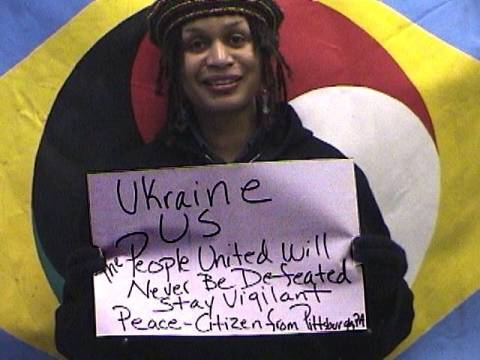 Ukraine
US
The People United Will
Never Be Defeated
Stay Vigilant
Peace-Citizen from Pittsburgh PA